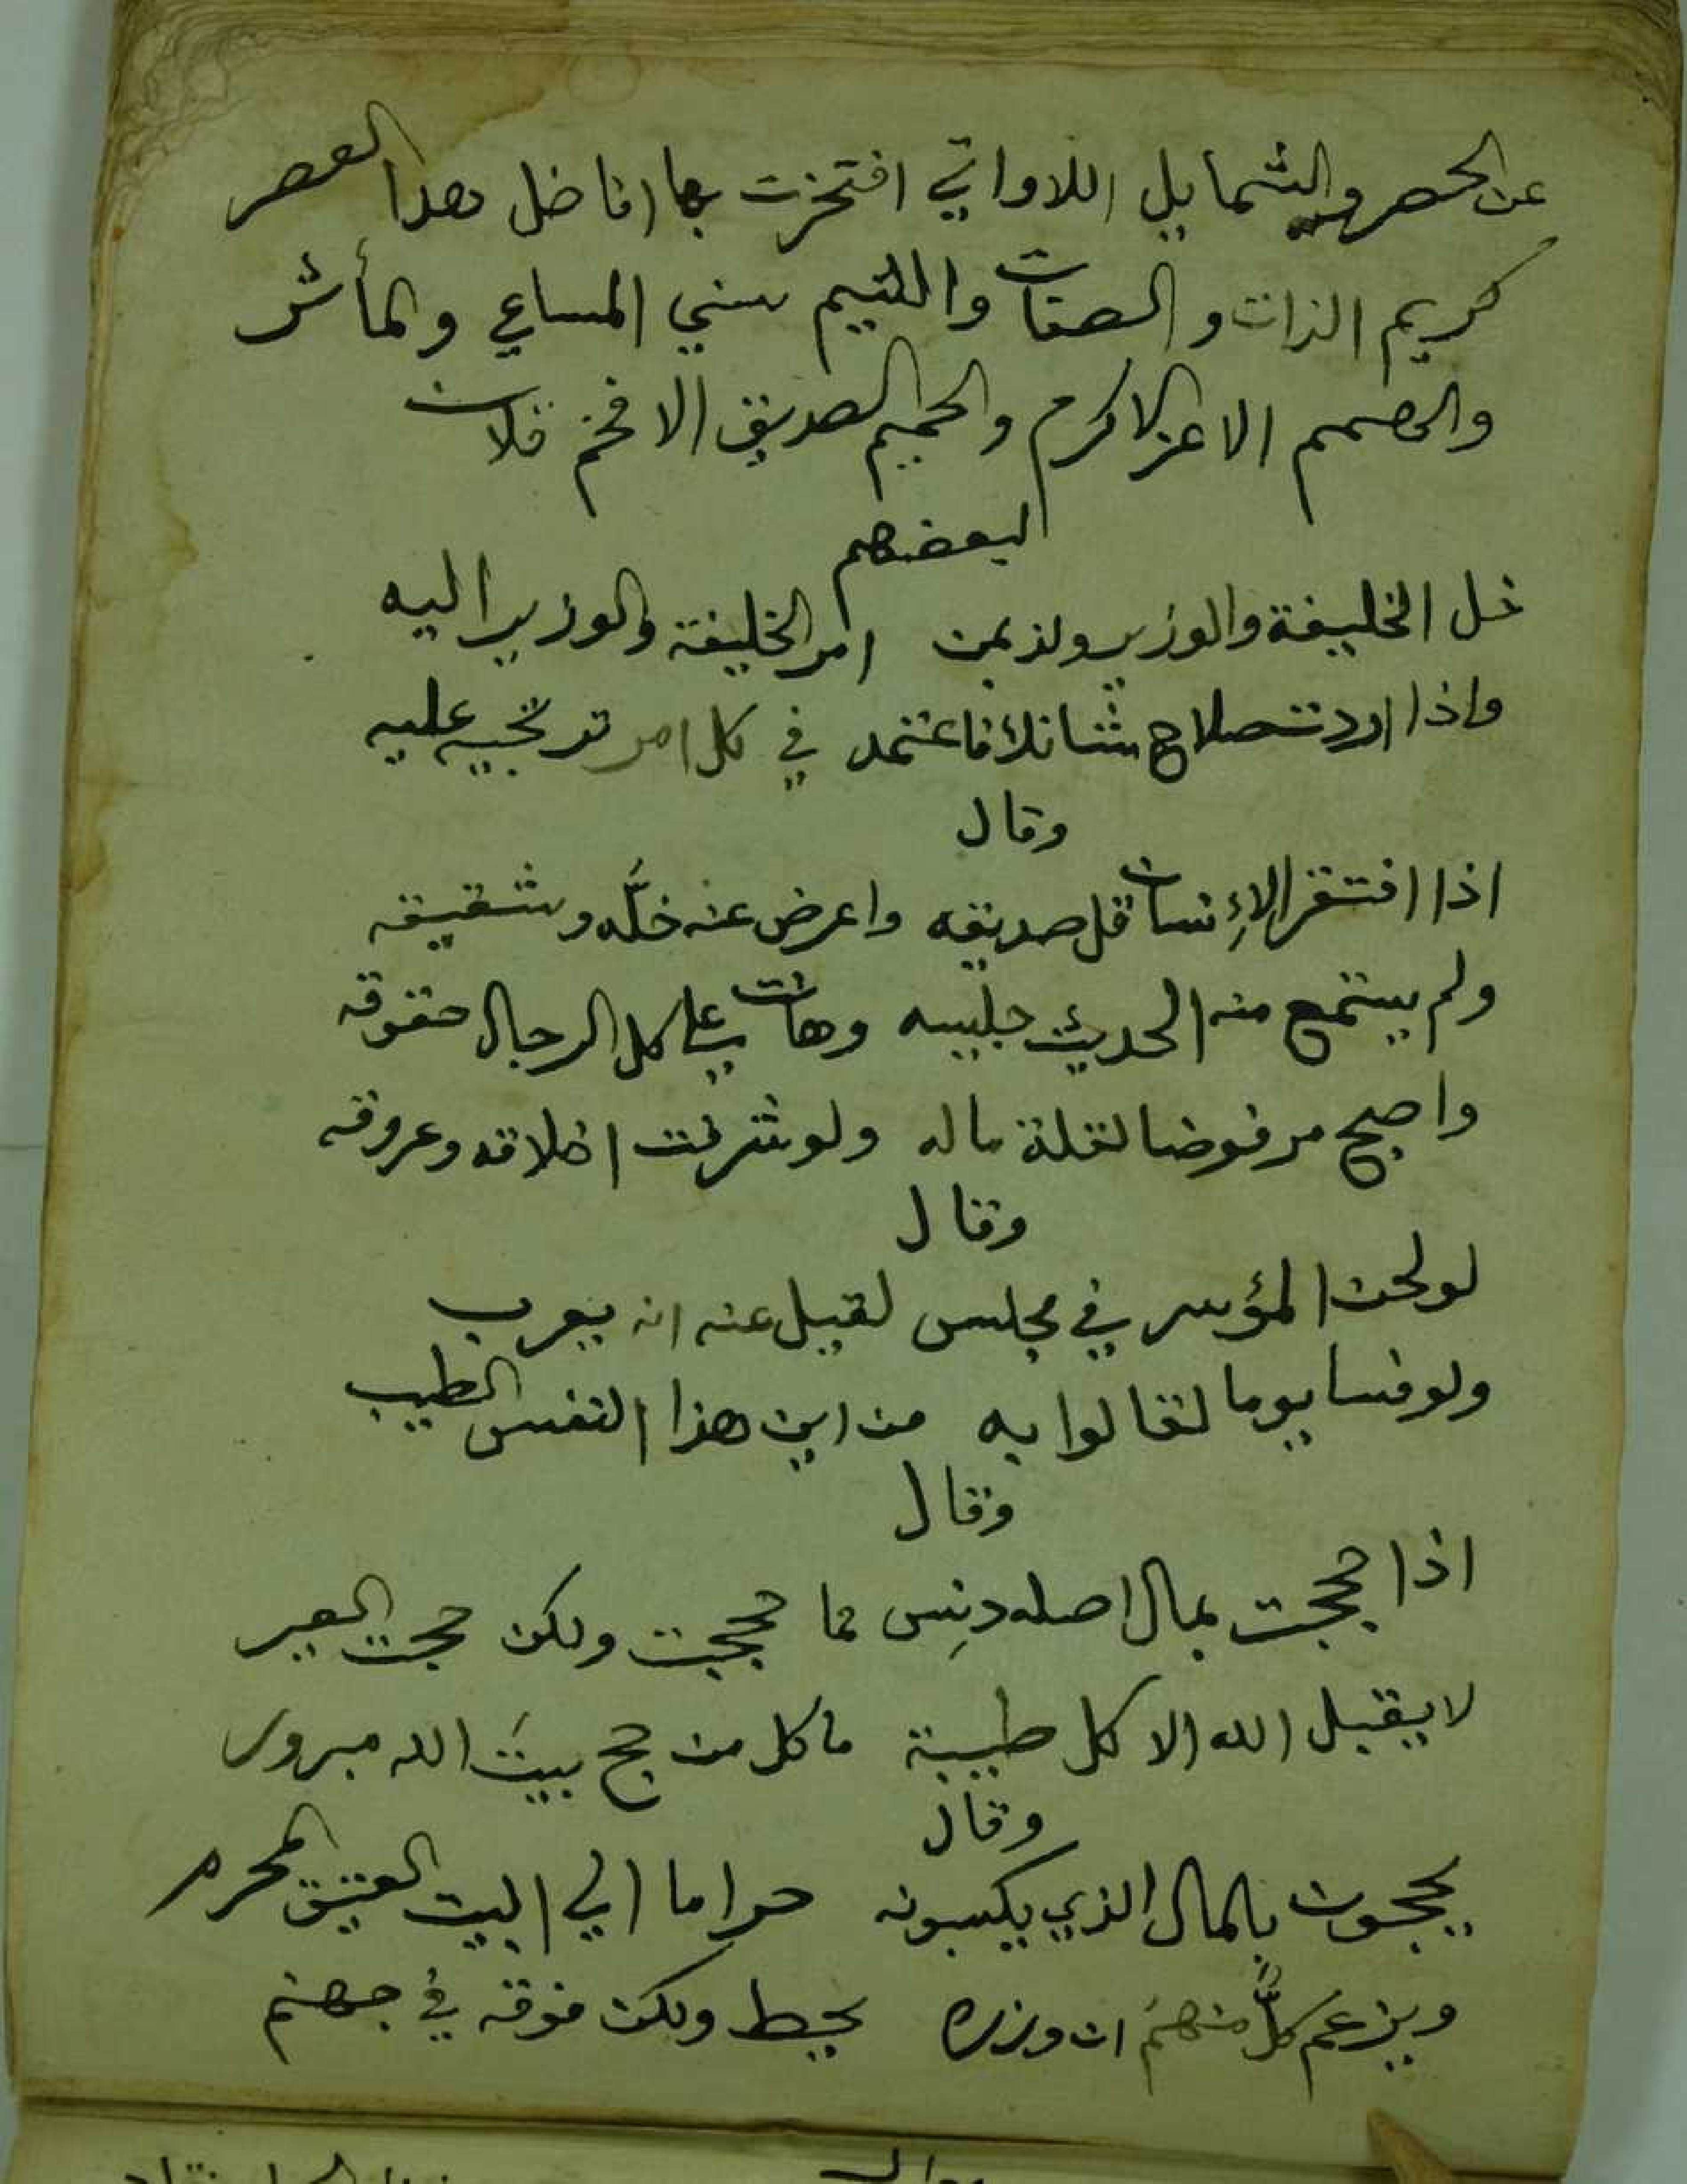 عن الحصر والشمايل اللاواتي افتخرت بها افاضل هدا العصر
كريم الذات والصفات والشيم سني المساعي والمأثر
والصميم الاعز الاكرم والحميم الصديق الافخم فلان
لبعضهم
خل الخليفة والوزير ولذ بمن امر الخليفة والوزير اليه
واذا اردت صلاح شانك فاعتمد في كل امر ترتجيه عليه
وقال
اذا افتقر الإنسان قل صديقه واعرض عنه خلّه وشقيقه
ولم يستمع منه الحديث جليسه وهان على كل الرجال حقوقه
واصبح مرفوضا لقلة ماله ولو شرفت اخلاقه وعروقه
وقال
لو لحن المؤسر في مجلس لقيل عنه انه يعرب
ولو فسا يوما لقالوا به من اين هذا النفس الطيب
وقال
اذا حججت بمال اصله دنِس فما حججت ولكن حجت العير
لا يقبل الله الا كل طيبة ما كل من حج بيتَ الله مبرور
وقال
يحجون بالمال الذي يكسبونه حراما الي البيت العتيق المحرم
ويزعم كلٌّ منهم ان وزره يحط ولكن فوقه في جهنم